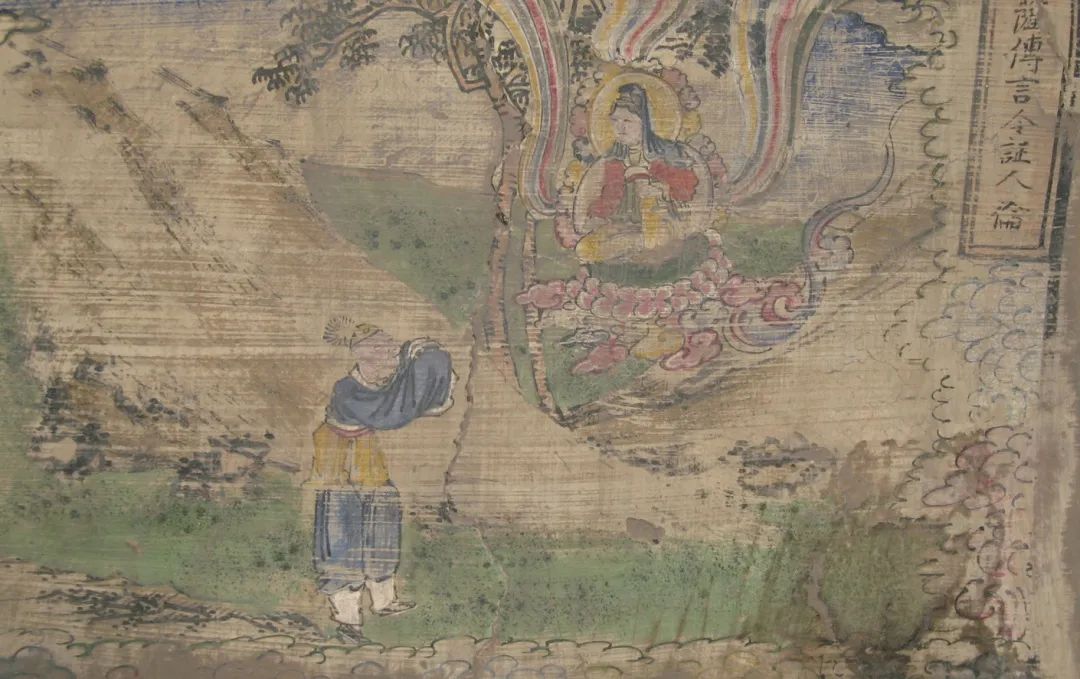 薩傳言令証人倫